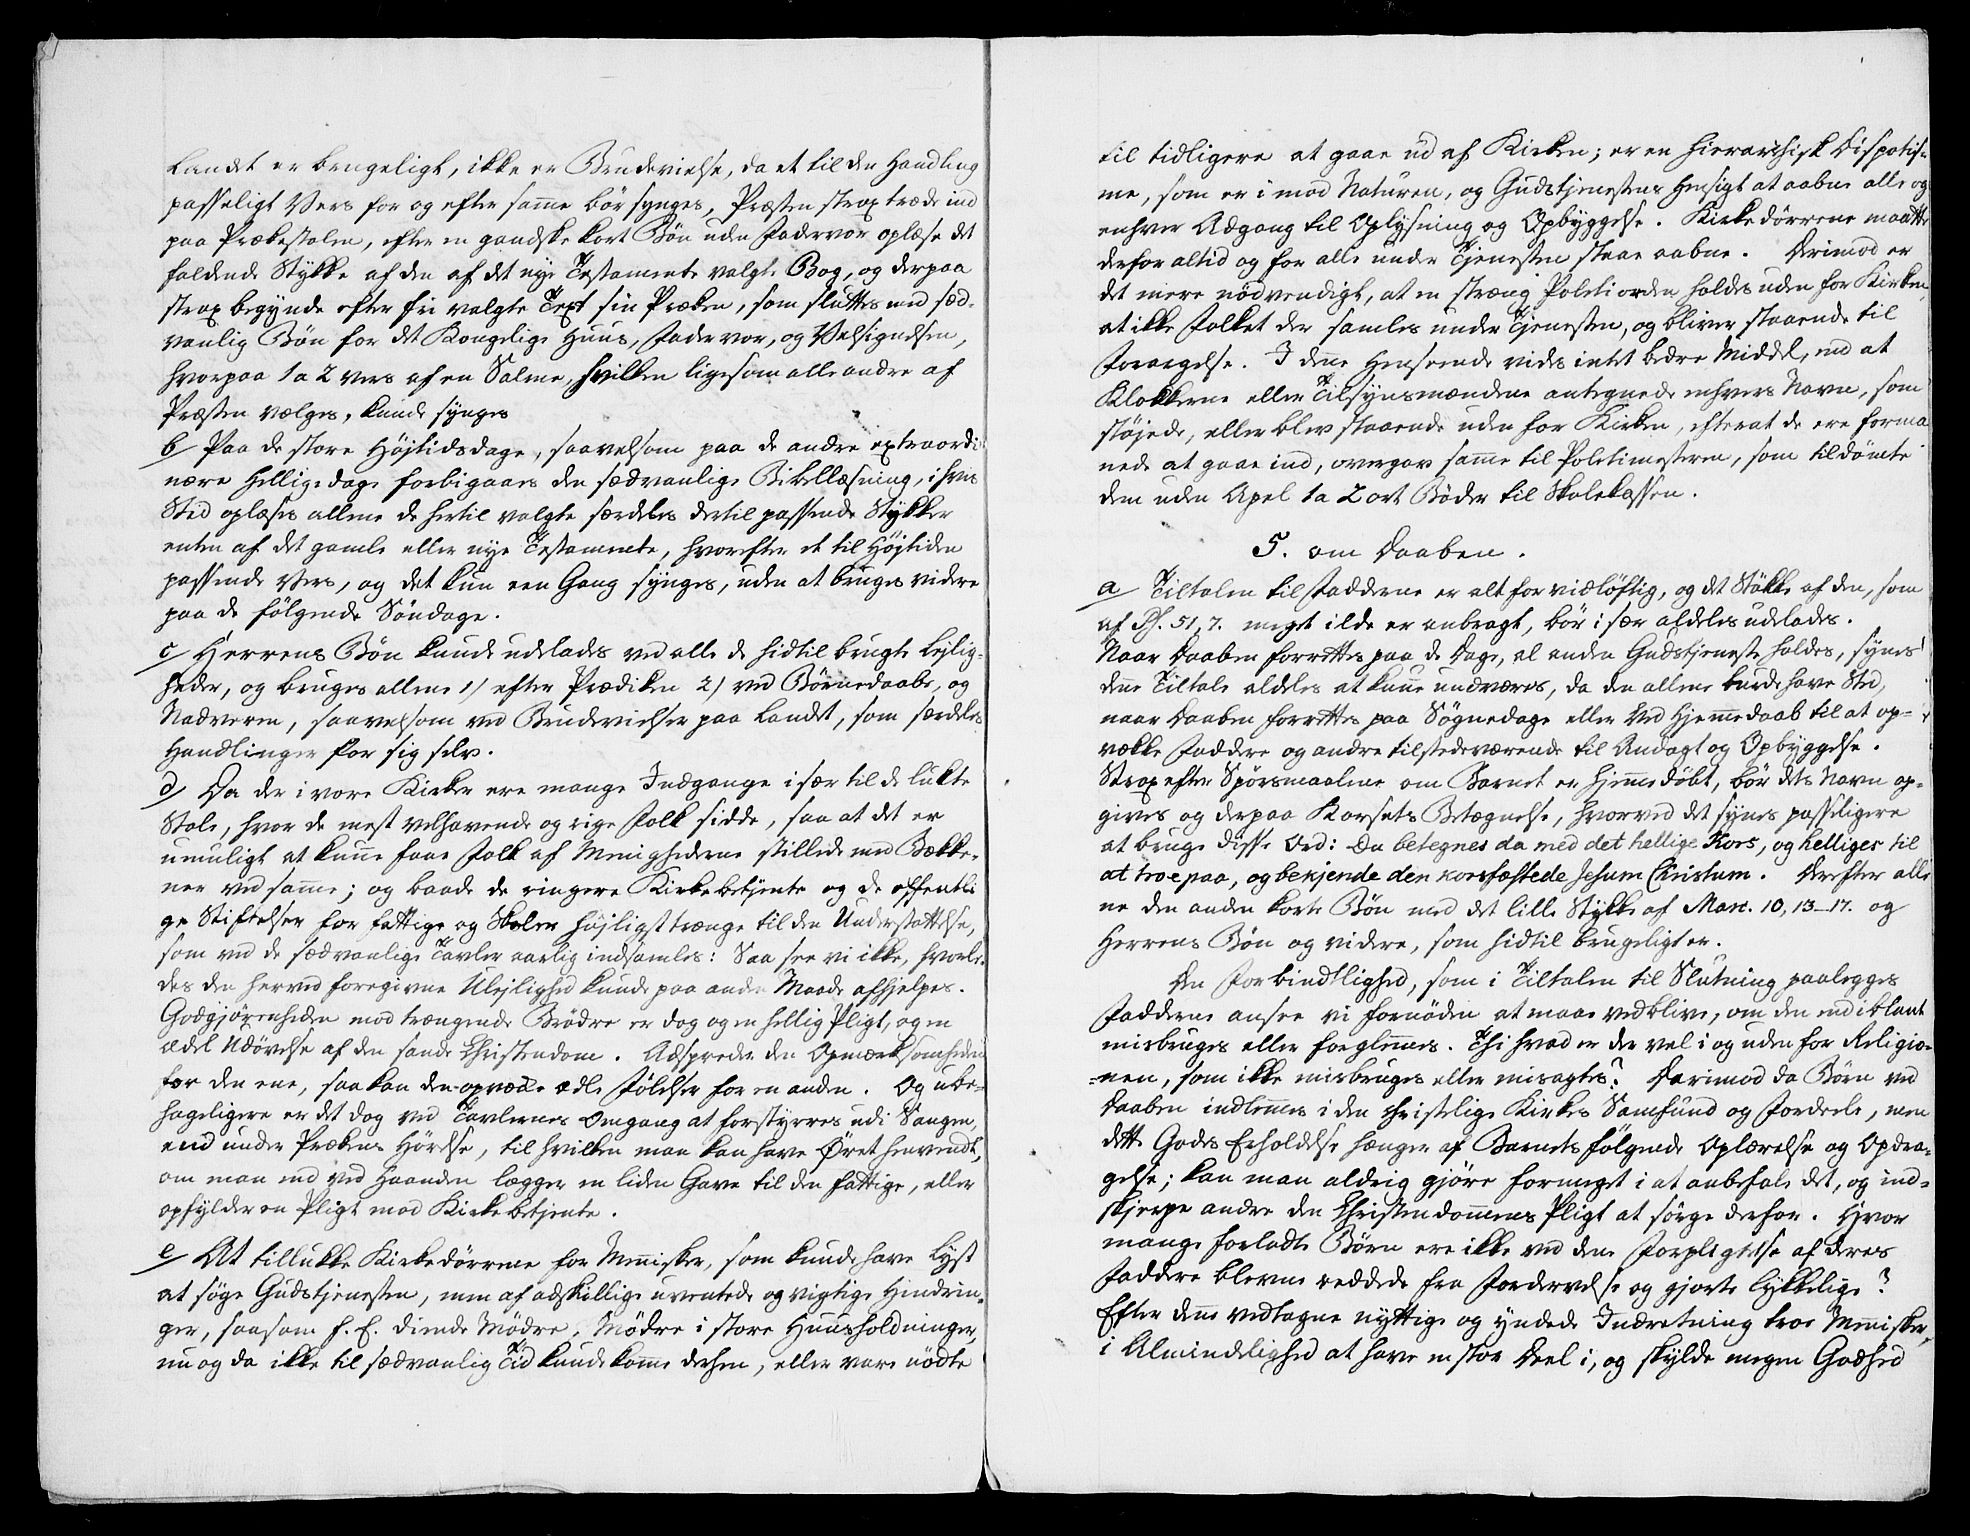 Landet er brugeligt, ikke er Brudevielse, da et til den Handling
passeligt Vers for og efter samme bør synges, Præsten strax træde ind
paa Prækestolen, efter en gandske kort Bøn uden Fadervor oplæse det
faldende Stykke af den af det nye Testamente valgte Bog, og derpaa
strax begynde efter frie valgte Text sin Præken, som sluttes med sæd-
vanlig Bøn for det Kongelige Huus, Fadervor, og Velsignelsen,
hvorpaa 1 a 2 vers af en Salme, hvilken ligesom alle andre af
Præsten vælges, kunde synges
b/ Paa de store Højtidsdage, saavelsom paa de andre extraordi-
nære Helligedage forbigaaes den sædvanlige Bibellæsning, i hvis
Sted oplæses allene de hertil valgte særdeles dertil passende Stykker
enten af det gamle eller nye Testamente, hvorefter et til Højtiden
passende Vers, og det kun een Gang synges, uden at bruges videre
paa de følgende Søndage.
c/ Herrens Bøn kunde udelades ved alle de hidtil brugte Lejlig-
heder, og bruges allene 1) efter Prædiken 2) ved Børnedaabe, og
Nadveren, saavelsom ved Brudevielser paa Landet, som særdeles
Handlinger for sig selv.
d/ Da der i vore Kirker ere mange Indgange især til de lukte
Stole, hvor de mest velhavende og rige Folk sidde, saa at det er
umuligt at kunne faae Folk af Menighederne stillede med Bække-
ner ved samme; og baade de ringere Kirkebetjente og de offentli
ge Stiftelser for fattige og Skoler højligst trænge til den Understøttelse,
som ved de sædvanlige Tavler aarlig indsamles: Saa see vi ikke, hvorle-
des den herved foregivne Ulejlighed kunde paa anden Maade afhjelpes.
Godgjørenheden mod trængende Brødre er dog og en hellig Pligt, og en
ædel Udøvelse af den sande Christendom. Adspreder den Opmærksomheden
for den ene, saa kan den opvække ædle Følelser for en anden. Og ube-
hageligere er det dog ved Tavlernes Omgang at forstyrres udi Sangen,
end under Prækens Hørelse, til hvilken man kan have Øret henvendt,
om man end ved Haanden lægger en liden Gave til den fattige, eller
opfylder en Pligt mod Kirkebetjente.
e/ At tillukke Kirkedørrene for Mennisker, som kunde have Lyst
at søge Gudstjenesten, men af adskillige uventede og vigtige Hindrin-
ger, saasom f. E. diende Mødre, Mødre i store Huusholdninger,
nu og da ikke til sædvanlig Tid kunde komme derhen, eller vare nødte
til tidligere at gaae ud af Kirken; er en hierarchisk Dispotis-
me, som er imod Naturen, og Gudstjenestens Hensigt at aabne alle og
enhver Adgang til Oplysning og Opbyggelse. Kirkedørrene maatte
derfor altid og for alle under Tjenesten staae aabne. Derimod er
det mere nødvendigt, at en stræng Politiorden holdes uden for Kirken,
at ikke Folket der samles under Tjenesten, og bliver staaende til
Forargelse. I denne Henseende vides intet bedre Middel, end at
Klokkerne eller Tilsynsmændene antegnede enhvers Navn, som
støjede, eller blev staaende uden for Kirken, efterat de ere forma
nede at gaae ind, overgav samme til Politimesteren, som tildømte
dem uden Apel 1 a 2 ort Bøder til Skolekassen.
5. om Daaben.
a/ Tiltalen til Fadderne er alt for vidløftig, og det Støkke af den, som
af Ps. 51, 7. meget ilde er anbragt, bør især aldeles udelades.
Naar Daaben forrettes paa de Dage, al anden Gudstjeneste holdes, synes
denne Tiltale aldeles at kunne undværes, da den allene burde have Sted,
naar Daaben forrettes paa Søgnedage eller ved Hjemmedaab til at op-
vække Faddere og andre tilstedeværende til Andagt og Opbyggelse.
Strax efter Spørsmaalene om Barnet er hjemmedøbt, bør dets Navn op-
gives og derpaa Korsets Betægnelse, hvorved det synes passeligere
at bruge disse Ord: Du betegnes da med det hellige Kors, og helliges til
at troe paa, og bekjende den korsfæstede Jesum Christum. Derefter alle
ne den anden korte Bøn med det lille Stykke af Marc. 10, 13-17. og
Herrens Bøn og videre, som hidtil brugeligt er.
Den Forbindtlighed, som i Tiltalen til Slutning paalegges
Fadderne ansee vi fornøden at maae vedblive, om den end iblant
misbruges eller forglemmes. Thi hvad er der vel i og uden for Religio-
-nen, som ikke misbruges eller misagtes? Derimod da Børn ved
Daaben indlemmes i den christelige Kirkes Samfund og Fordeele, men
dette Godes Erholdelse hænger af Barnets følgende Oplærelse og Opdra-
gelse; kan man aldrig gjøre formeget i at anbefale det, og ind-
skjerpe andre den Christendommens Pligt at sørge derfor. Hvor
mange forladte Børn ere ikke ved denne Forpligtelse af deres
Faddere blevne reddede fra Fordervelse og gjorte lykkelige?
Efter denne vedtagne nyttige og yndede Indretning troe Mennisker,
i Almindelighed at have en stor Deel i, og skylde megen Godhed